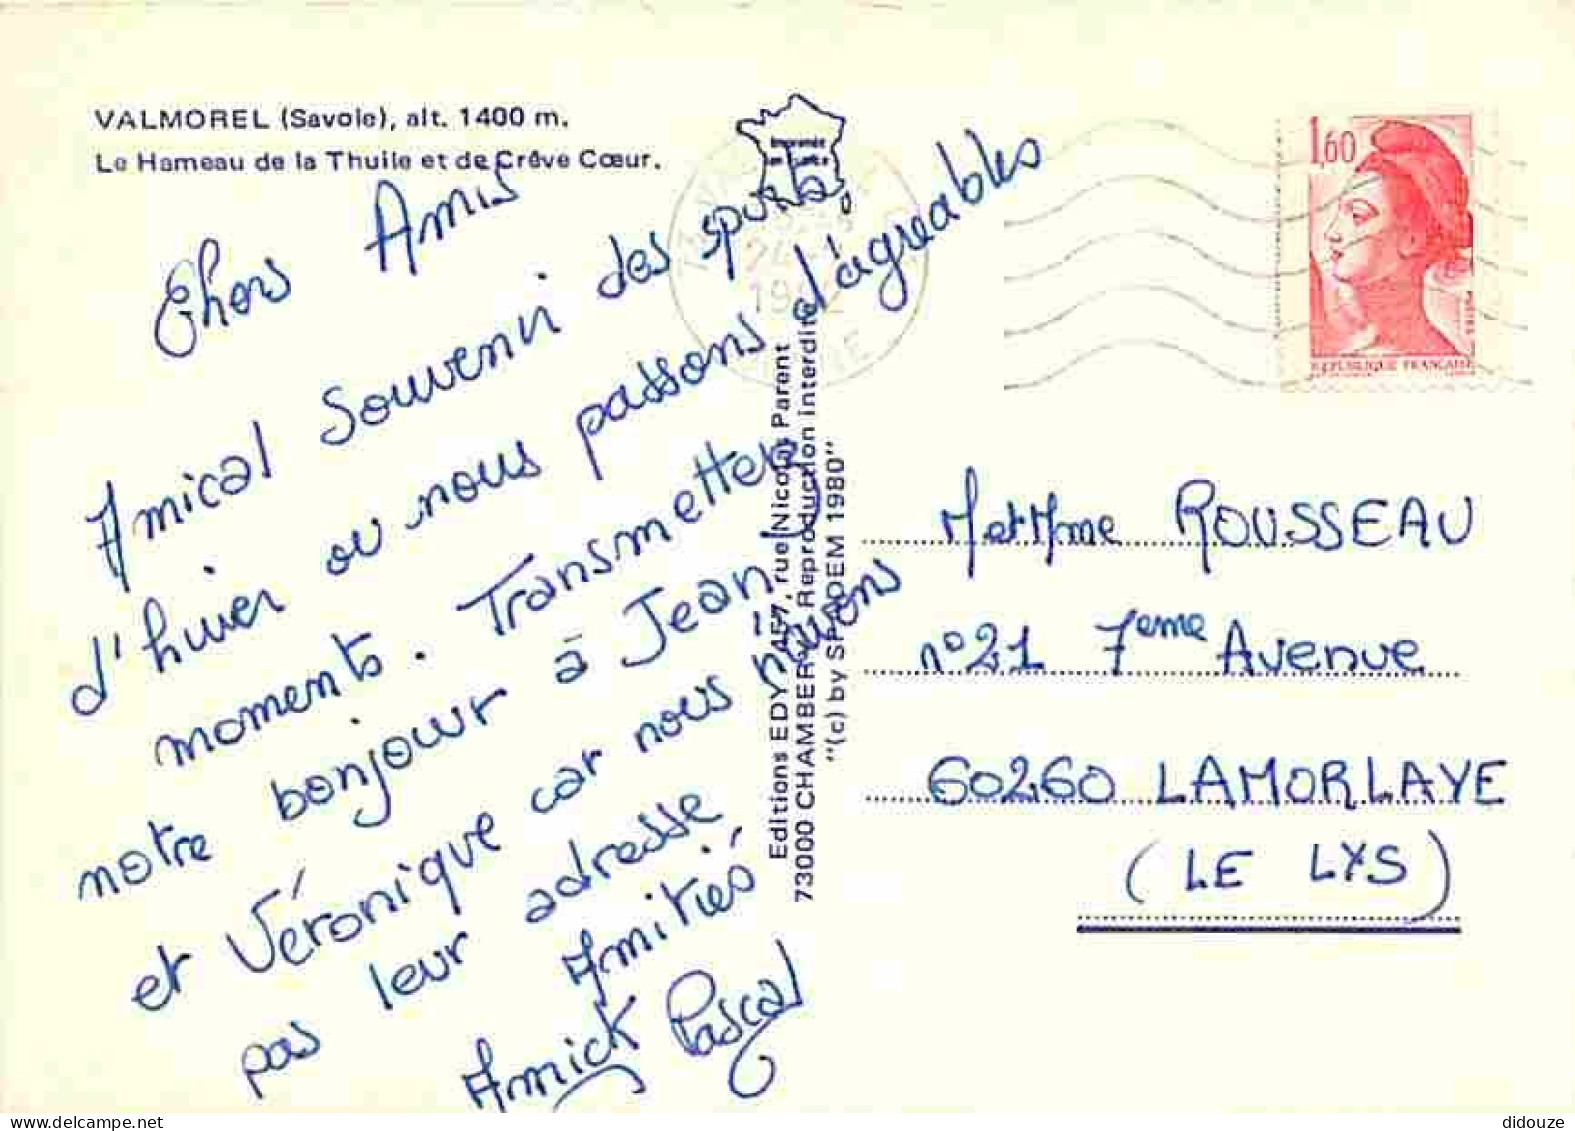 VALMOREL (Savoie), alt. 1400 m.
Le Hameau de la Thuile et de Crêve Cœur.
Imprimée
en France
1,60
POSTES
REPUBLIQUE FRANÇAISE
Chers Amis
Amical Souvenir des sports
d'hiver ou nous passons d'agréables
moments. Transmettez
notre bonjour à Jean
et Véronique car nous n'avons
pas leur adresse
Amitiés
Annick Pascal
Editions EDY 457, rue Nicolas Parent
73000 CHAMBERY Reproduction interdite
"(c) by SPADEM 1980"
M et Mme ROUSSEAU
n°21 7eme Avenue
60260 LAMORLAYE
(LE LYS)
didouze